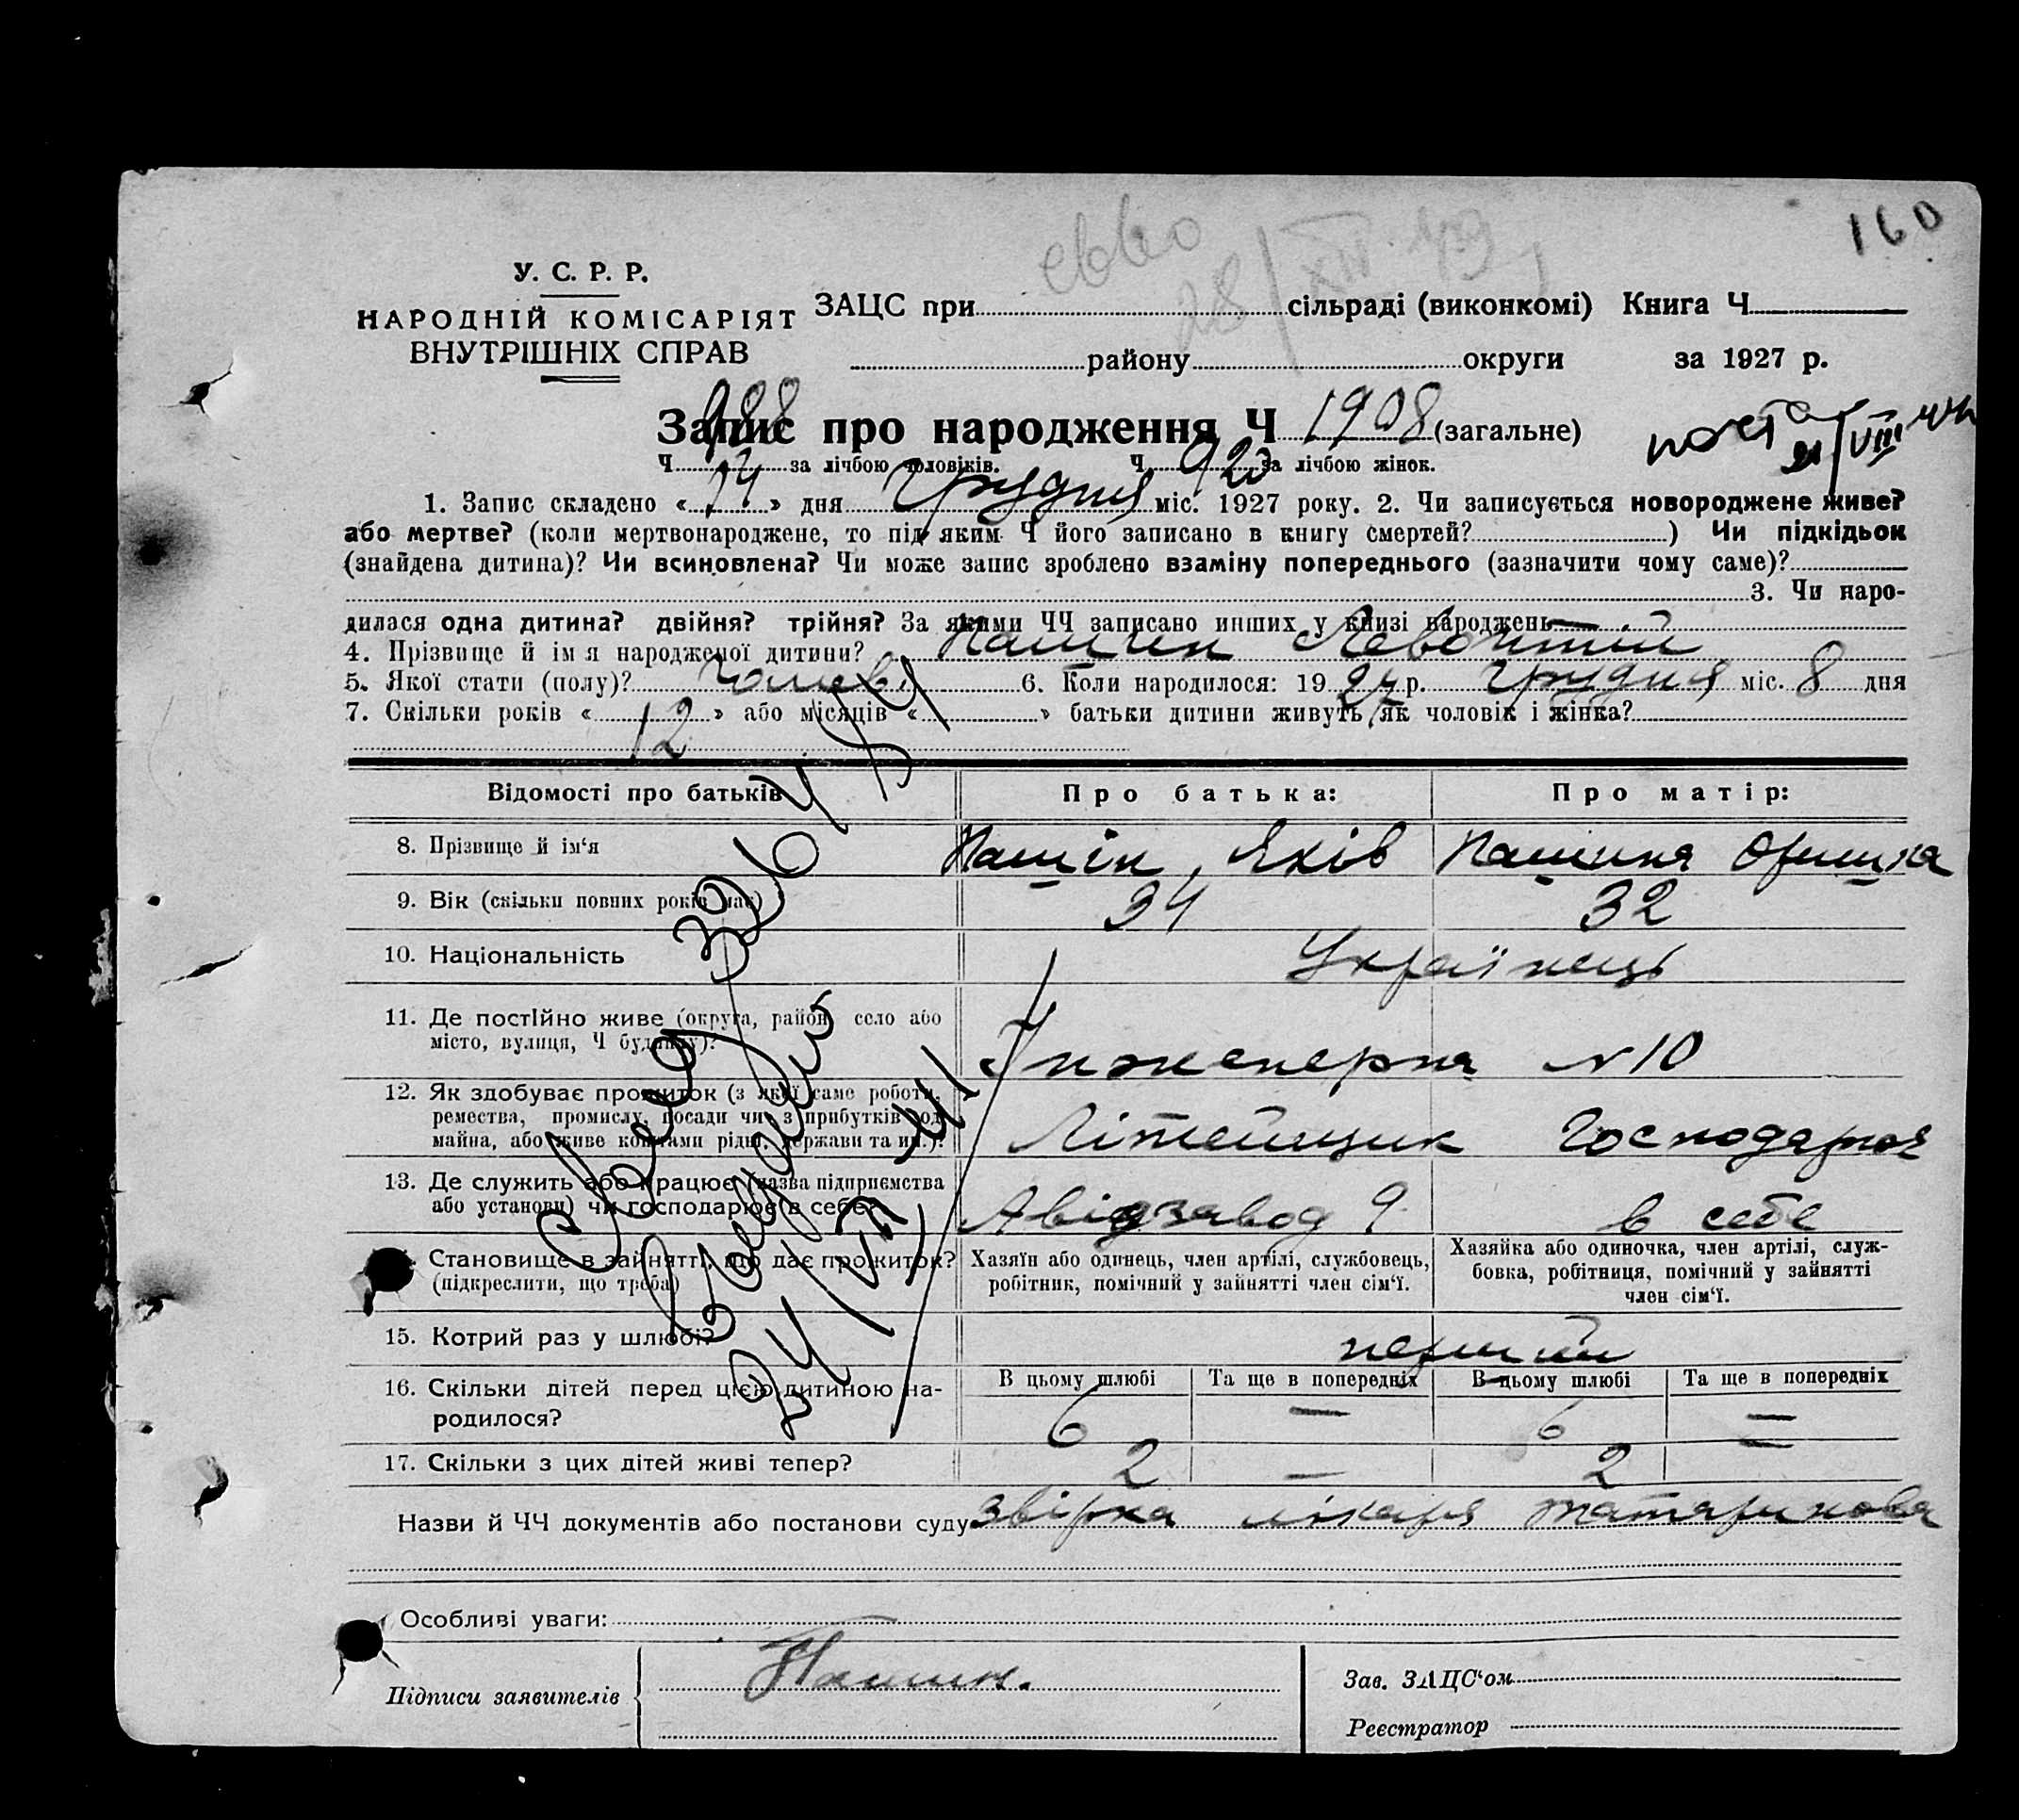 160
У. С. Р. Р.
НАРОДНІЙ КОМІСАРІЯТ
ВНУТРІШНІХ СПРАВ
ЗАЦС при сільраді (виконкомі) Книга Ч
району округи за 1927 р.
28/XII 49
Запис про народження Ч 1908 (загальне)
Ч 988 за лічбою чоловіків. Ч 920 за лічбою жінок.
21/VIII
1. Запис складено « 14 » дня Грудня міс. 1927 року. 2. Чи записується новороджене живе?
або мертве? (коли мертвонароджене, то під яким Ч його записано в книгу смертей? ) Чи підкідьок
(знайдена дитина)? Чи всиновлена? Чи може запис зроблено взаміну попереднього (зазначити чому саме)?
3. Чи наро-
дилася одна дитина? двійня? трійня? За якими ЧЧ записано инших у книзі народжень
4. Прізвище й ім я народженої дитини? Пашин Левонтій
5. Якої стати (полу)? чолов. 6. Коли народилося: 19 27 р. Грудня міс. 8 дня
7. Скільки років « 12 » або місяців « » батьки дитини живуть як чоловік і жінка?
Відомості про батьків Про батька: Про матір:
8. Прізвище й ім‘я Пашін, Яків Пашиня Оришка
9. Вік (скільки повних років має) 34 32
10. Національність Українець
11. Де постійно живе (округа, район, село або
місто, вулиця, Ч будинку)? Інженерна N 10
12. Як здобуває прожиток (з якої саме роботи,
ремества, промислу, посади чи з прибутків од
майна, або живе коштами рідні, держави та ин.)? Літейщик Господарює
13. Де служить або працює (назва підприємства
або установи) чи господарює в себе? Авіозавод 9 в себе
Становище в зайнятті, що дає прожиток?
(підкреслити, що треба)
Хазяїн або одинець, член артілі, службовець,
робітник, помічний у зайнятті член сім‘ї.
Хазяйка або одиночка, член артілі, служ-
бовка, робітниця, помічний у зайнятті
член сім‘ї.
15. Котрий раз у шлюбі? перший
16. Скільки дітей перед цією дитиною на-
родилося?
В цьому шлюбі Та ще в попередніх В цьому шлюбі Та ще в попередніх
6 — 6 —
17. Скільки з цих дітей живі тепер? 2 — 2 —
Назви й ЧЧ документів або постанови суду Звірка лікаря Татаринова
Особливі уваги:
Підписи заявителів Пашин.
Зав. ЗАЦС‘ом
Реєстратор